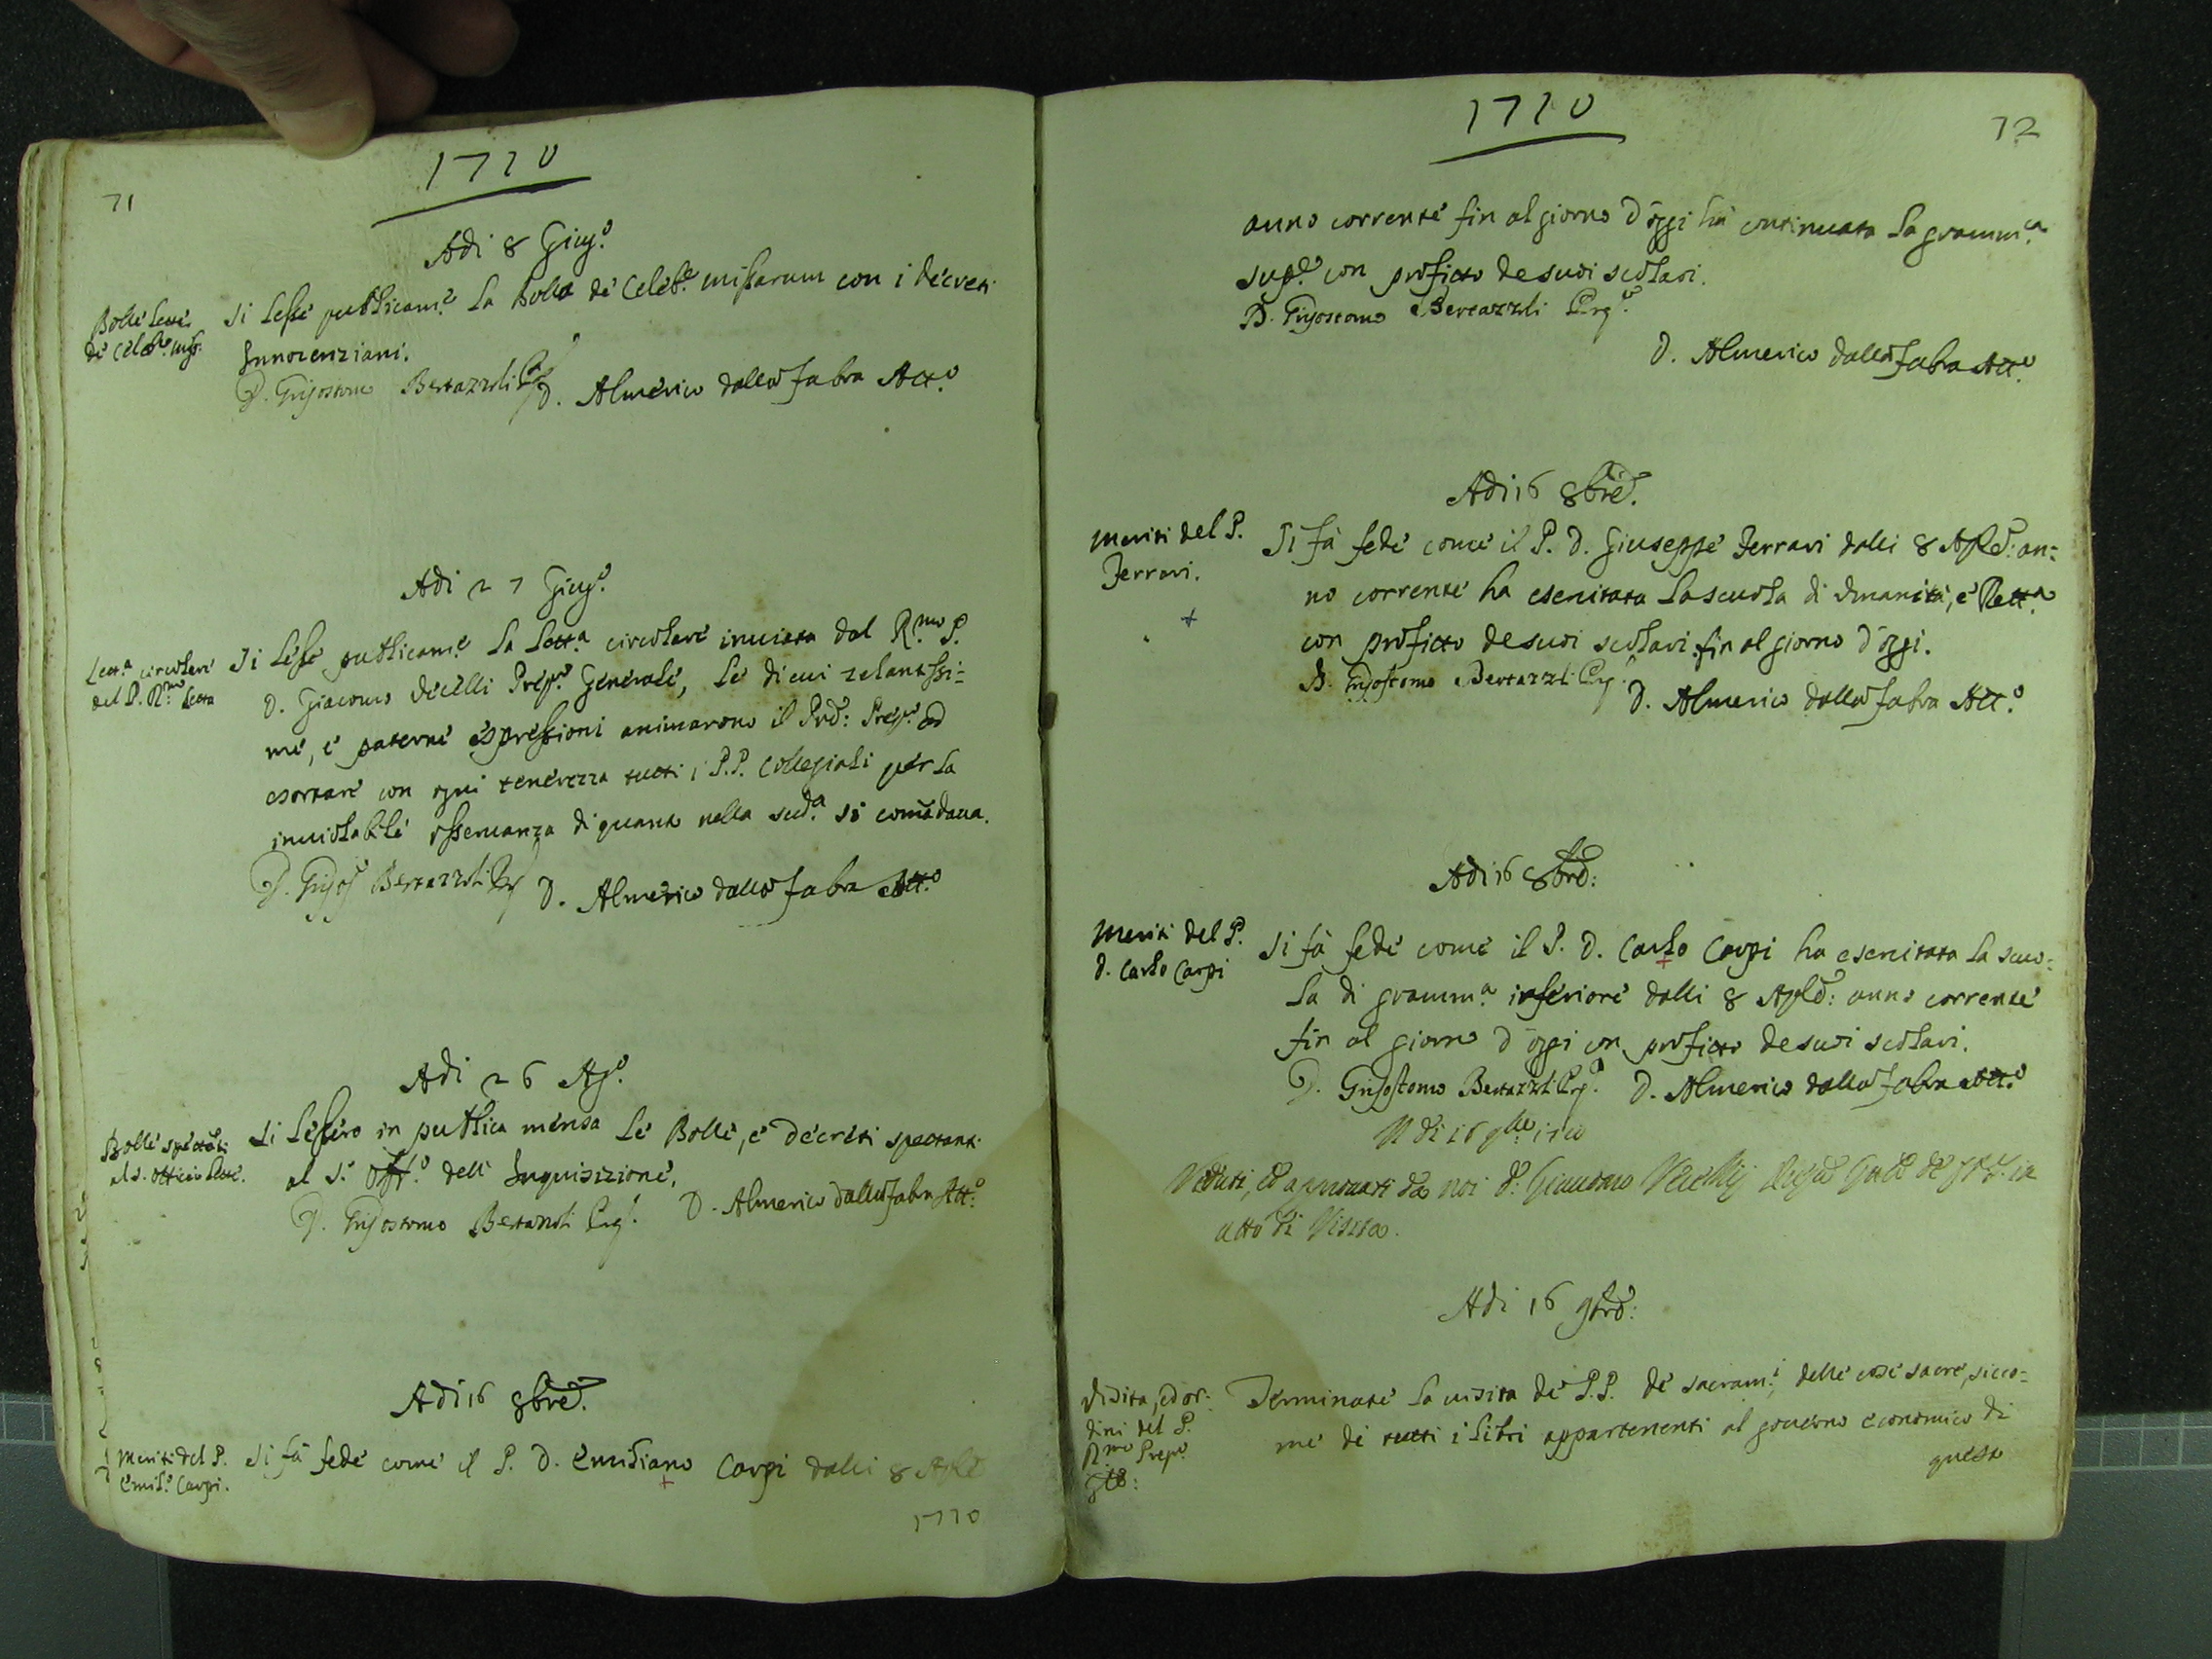 71
1710
Adi 8 Giug.o
Bolle lette
de Celeb.e miss.
Si lesse publicam.e la Bolla de Celeb.e missarum con i decreti
Innocenziani.
D. Grisostomo Bertazzoli
D. Almerico dalla Fabra Att.o
Adi 27 Giug.o
Lett.a circolare
del P. R.mo letta
Si lesse publicam.e la lett.a circolare inviata dal R.mo P.
D. Giacomo Vecelli Prep.o Generale, le di cui zelantissi=
me, e paterne espressioni animarono il Prd: Prep.o ad
esortare con ogni tenerezza tutti i P.P. Collegiali per la
inviolabile osservanza di quanto nella sud.a si comãdava.
D. Grisos Bertazzoli
D. Almerico dalla Fabra Att.o
Adi 26 Ag.o
Bolle spectãti
al S. Officio lette.
Si lessero in publica mensa le Bolle, e decreti spectanti
al S. Off.o dell' Inquisizione.
D. Grisostomo Bertazzoli
D. Almerico dalla Fabra Att.o
Adi 16 8bre.
Meriti del P.
Emil.o Carpi.
Si fà fede come il P. D. Emiliano Carpi dalli 8 Aple
1710
1710
72
anno corrente fin al giorno d'oggi hà continuata la gramm.a
sup.e con profitto de suoi scolari.
D. Grisostomo Bertazzoli
D. Almerico dalla Fabra Att.o
Adi 16 8bre.
Meriti del P.
Ferrari.
+
Si fà fede come il P. D. Giuseppe Ferrari dalli 8 Aple: an=
no corrente ha esercitata la scuola di Umanità, e Rett.a
con profitto de suoi scolari fin al giorno d'oggi.
D. Grisostomo Bertazzoli
D. Almerico dalla Fabra Att.o
Adi 16 8bre:
Meriti del P.
D. Carlo Carpi
Si fà fede come il P. D. Carlo Carpi ha esercitata la scuo=
la di gramm.a inferiore dalli 8 Aple: anno corrente
fin al giorno d'oggi con profitto de suoi scolari.
D. Grisostomo Bertazzoli
D. Almerico dalla Fabra Att.o
A di 16 9bre 1710
Veduti, ed approvati da noi D. Giacomo
atto di Visita.
Adi 16 9bre:
Visita, ed or=
dini del P.
R.mo Prep.o
Gle:
Terminate la visita de P.P. de sacram.i, delle cose sacre, sicco=
me di tutti i libri appartenenti al governo economico di
questo